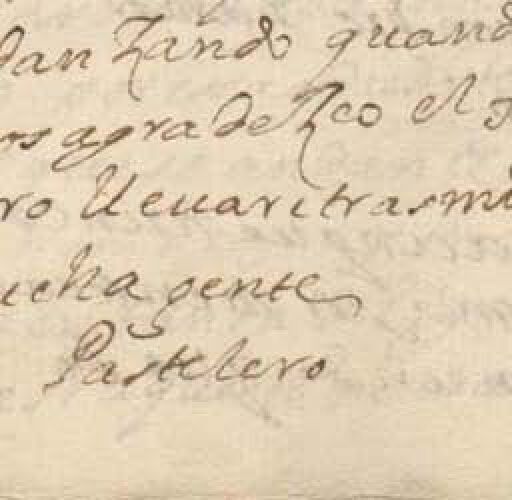 dan Zando quand
os agradeZco el
ro lleuar i tras mi
ucha gente
Pastelero